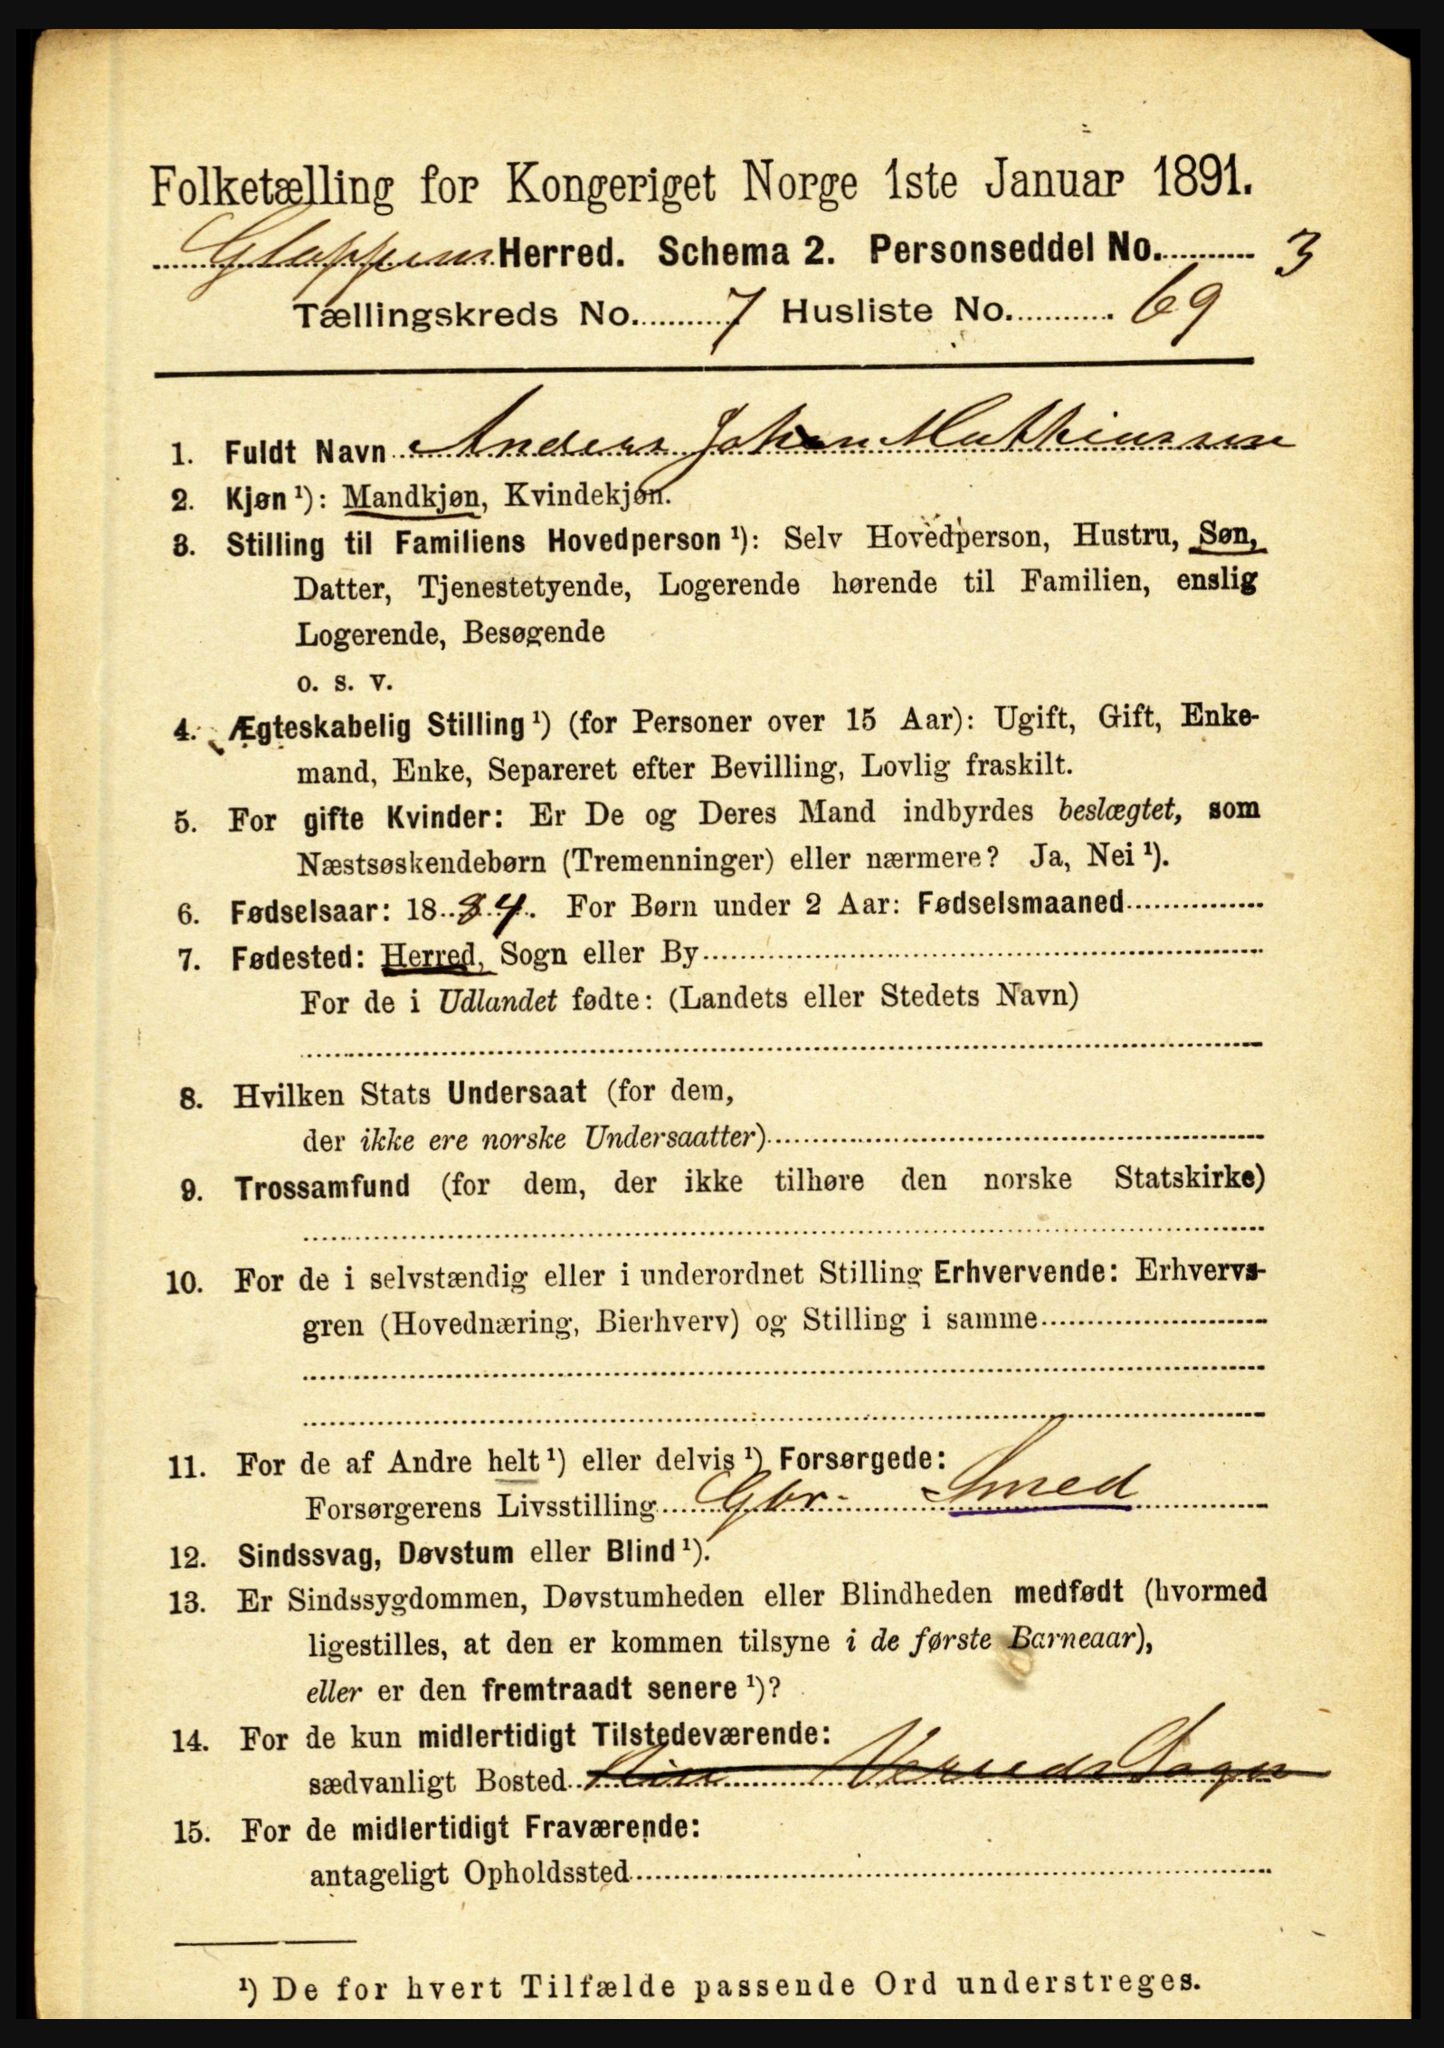 Folketælling for Kongeriget Norge 1ste Januar 1891.
Gloppen Herred. Schema 2. Personseddel No. 3
Tællingskreds No. 7 Husliste No. 69
1. Fuldt Navn Anders Johan Mathiassen
2. Kjøn ¹): Mandkjøn, Kvindekjøn.
3. Stilling til Familiens Hovedperson ¹): Selv Hovedperson, Hustru, Søn,
Datter, Tjenestetyende, Logerende hørende til Familien, enslig
Logerende, Besøgende
o. s. v.
4. Ægteskabelig Stilling ¹) (for Personer over 15 Aar): Ugift, Gift, Enke-
mand, Enke, Separeret efter Bevilling, Lovlig fraskilt.
5. For gifte Kvinder: Er De og Deres Mand indbyrdes beslægtet, som
Næstsøskendebørn (Tremenninger) eller nærmere? Ja, Nei ¹).
6. Fødselsaar: 1884. For Børn under 2 Aar: Fødselsmaaned
7. Fødested: Herred, Sogn eller By
For de i Udlandet fødte: (Landets eller Stedets Navn)
8. Hvilken Stats Undersaat (for dem,
der ikke ere norske Undersaatter)
9. Trossamfund (for dem, der ikke tilhøre den norske Statskirke)
10. For de i selvstændig eller i underordnet Stilling Erhvervende: Erhvervs-
gren (Hovednæring, Bierhverv) og Stilling i samme
11. For de af Andre helt ¹) eller delvis ¹) Forsørgede:
Forsørgerens Livsstilling Gbr. Smed
12. Sindssvag, Døvstum eller Blind ¹).
13. Er Sindssygdommen, Døvstumheden eller Blindheden medfødt (hvormed
ligestilles, at den er kommen tilsyne i de første Barneaar),
eller er den fremtraadt senere ¹)?
14. For de kun midlertidigt Tilstedeværende:
sædvanligt Bosted Sogn
15. For de midlertidigt Fraværende:
antageligt Opholdssted
¹) De for hvert Tilfælde passende Ord understreges.